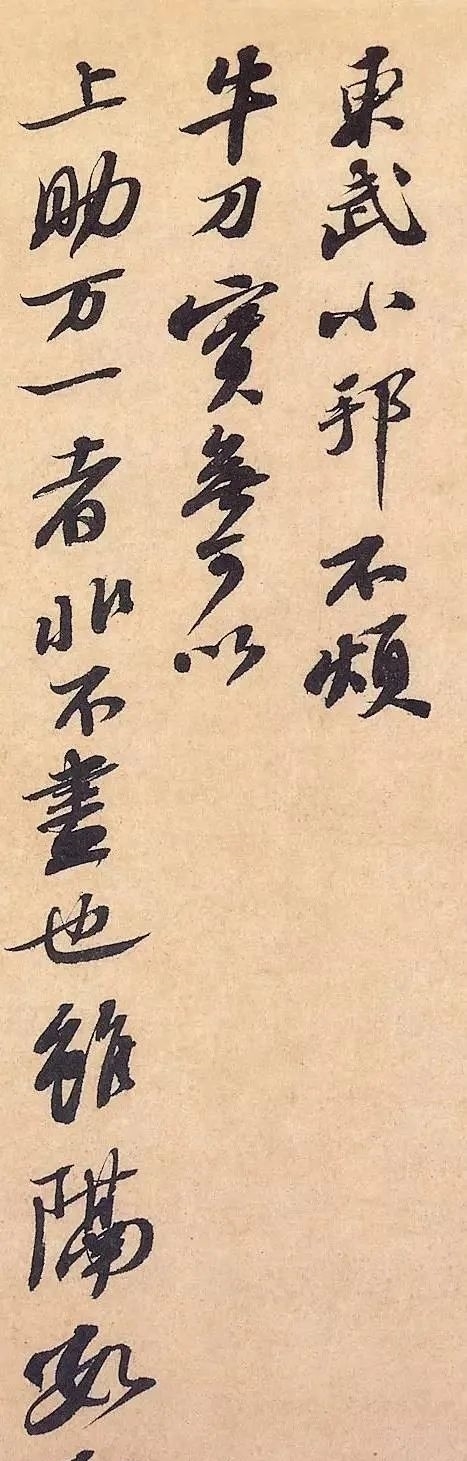 東武小邦不煩
牛刀實無可以
上助万一者非不盡也雖隔數